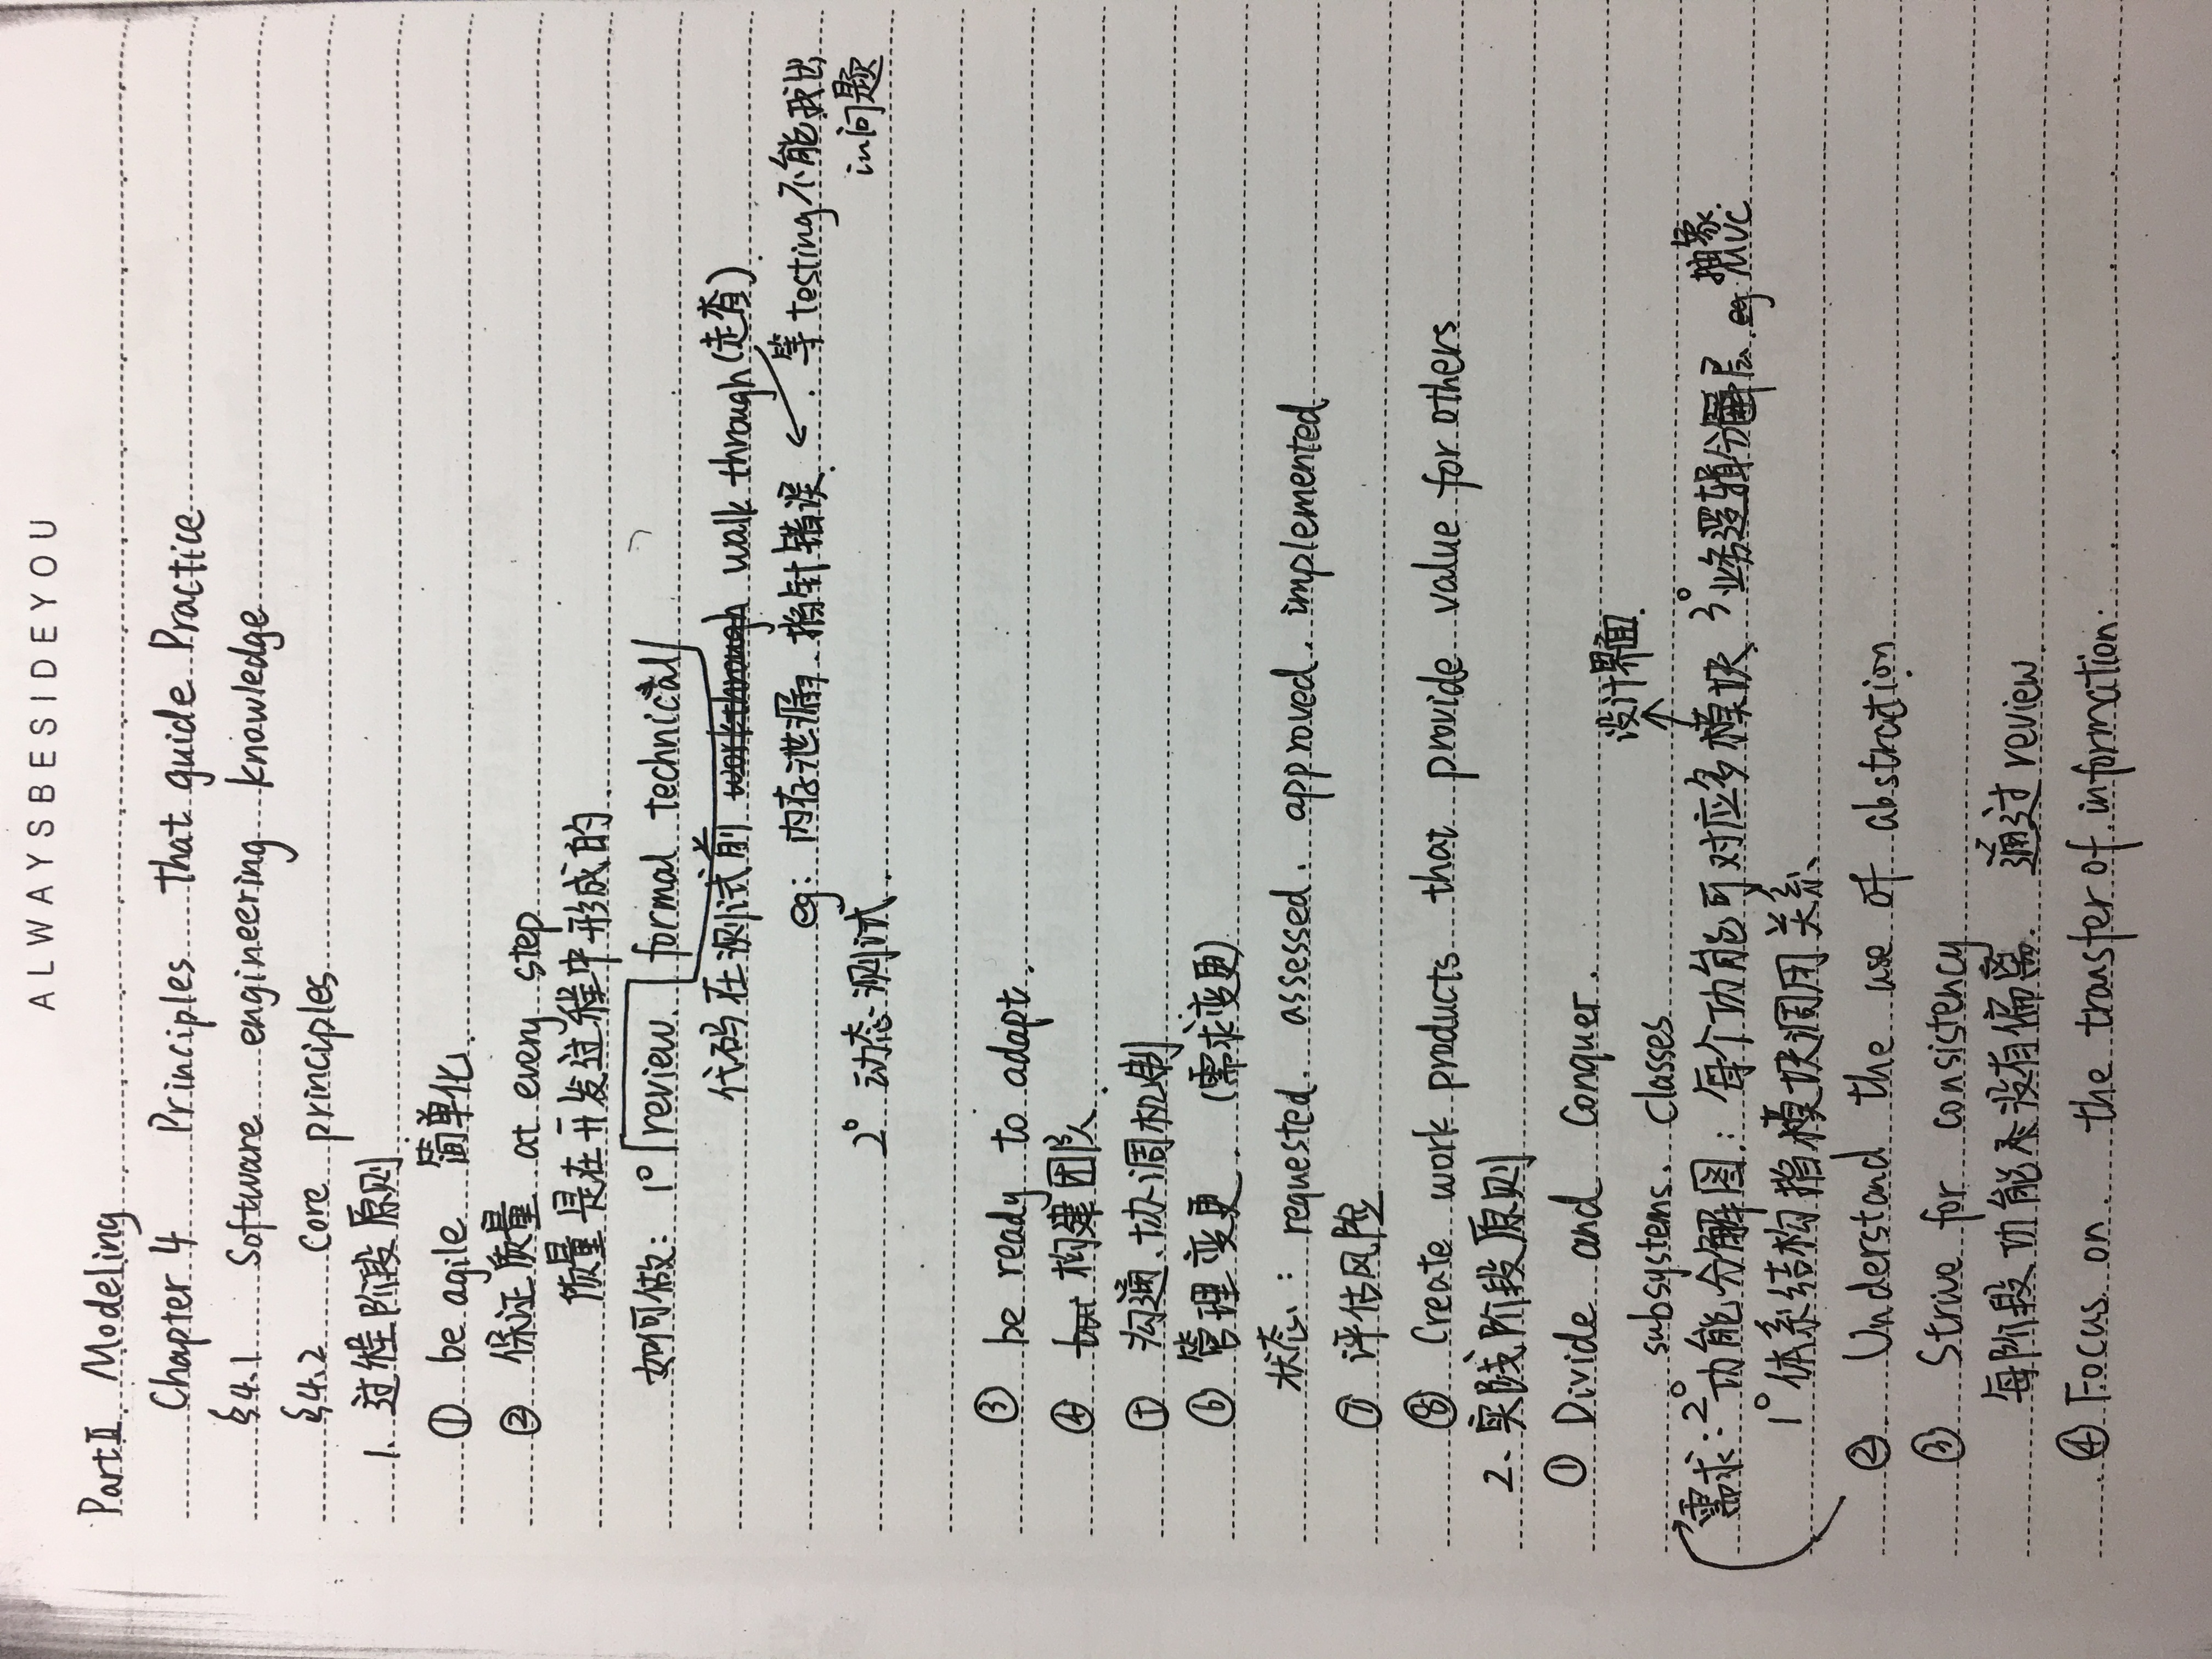 ALWAYSBESIDEYOU
Part Ⅱ. Modeling
Chapter 4 Principles That guide Practice
§4.1 Software engineering knowledge
§4.2 Core principles
1. 过程阶段原则
① be agile 简单化.
② 保证质量 at every step
质量是在开发过程中形成的.
如何做: 1° review. formal technical
代码在测试前 walk through (走查).
eg: 内存泄漏、指针错误. ← . 等testing不能找出
in问题
2° 动态测试.
③ be ready to adapt.
④ 构建团队.
⑤ 沟通、协调机制
⑥ 管理变更. (需求变更)
状态: requested. assessed. approved. implemented
⑦ 评估风险
⑧ Create work products that provide value for others
2、实践阶段原则
① Divide and Conquer.
设计界面.
subsystems. classes
需求: 2° 功能分解图: 每个功能可对应多模块、3° 业务逻辑分层. eg 抽象. MVC
1° 体系结构指模块调用关系、
② Understand the use of abstraction
③ Strive for consistency
每阶段功能没有偏离. 通过review.
④ Focus on the transfer of information.